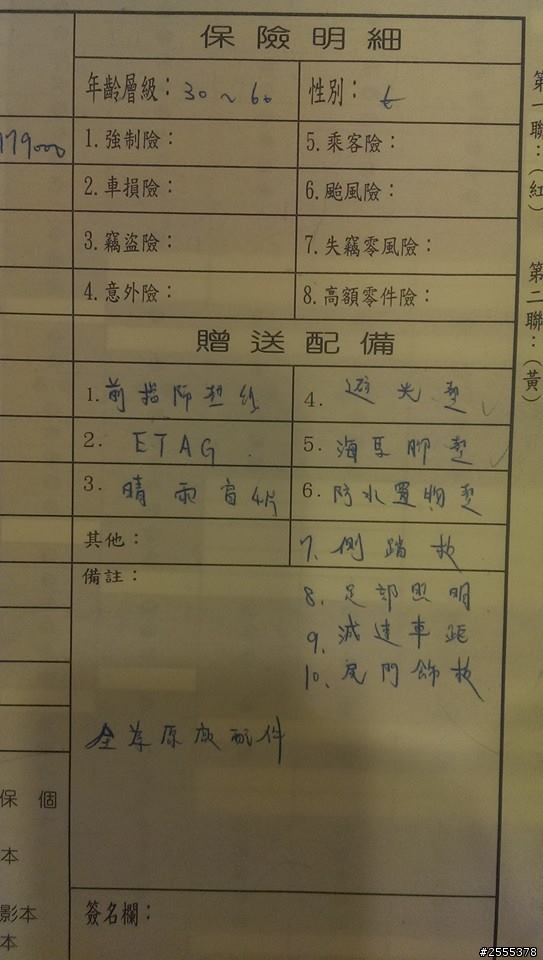 保險明細
年齡層級：30～60
性別：女
179000
1.強制險：
5.乘客險：
2.車損險：
6.颱風險：
3.竊盜險：
7.失竊零風險：
4.意外險：
8.高額零件險：
贈送配備
1.前擋隔熱紙
4.避光墊
2. ETAG
5.海馬腳墊
3.晴雨窗4片
6.防水置物墊
其他：
7.側踏板
備註：
8.足部照明
9.減速車距
10.尾門飾板
全為原廠配件
簽名欄：
保個
本
影本
本
第一聯：(紅)
第二聯：(黃)
#2555378